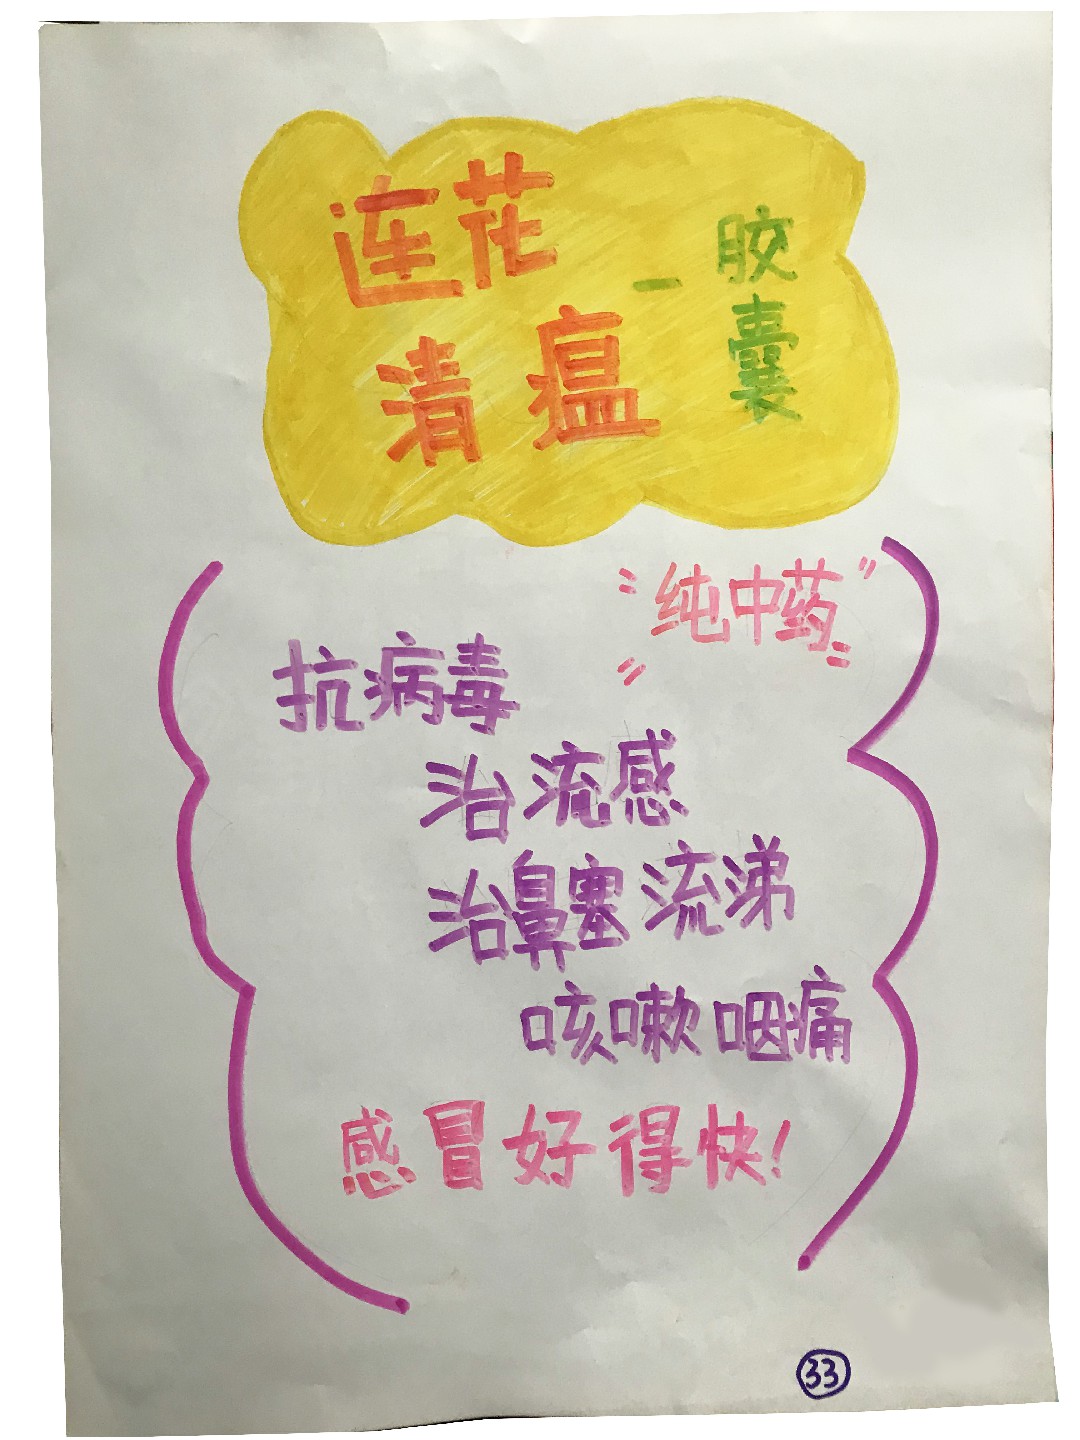 连花
清瘟
-胶囊
"纯中药"
抗病毒
治流感
治鼻塞流涕
咳嗽咽痛
感冒好得快!
33